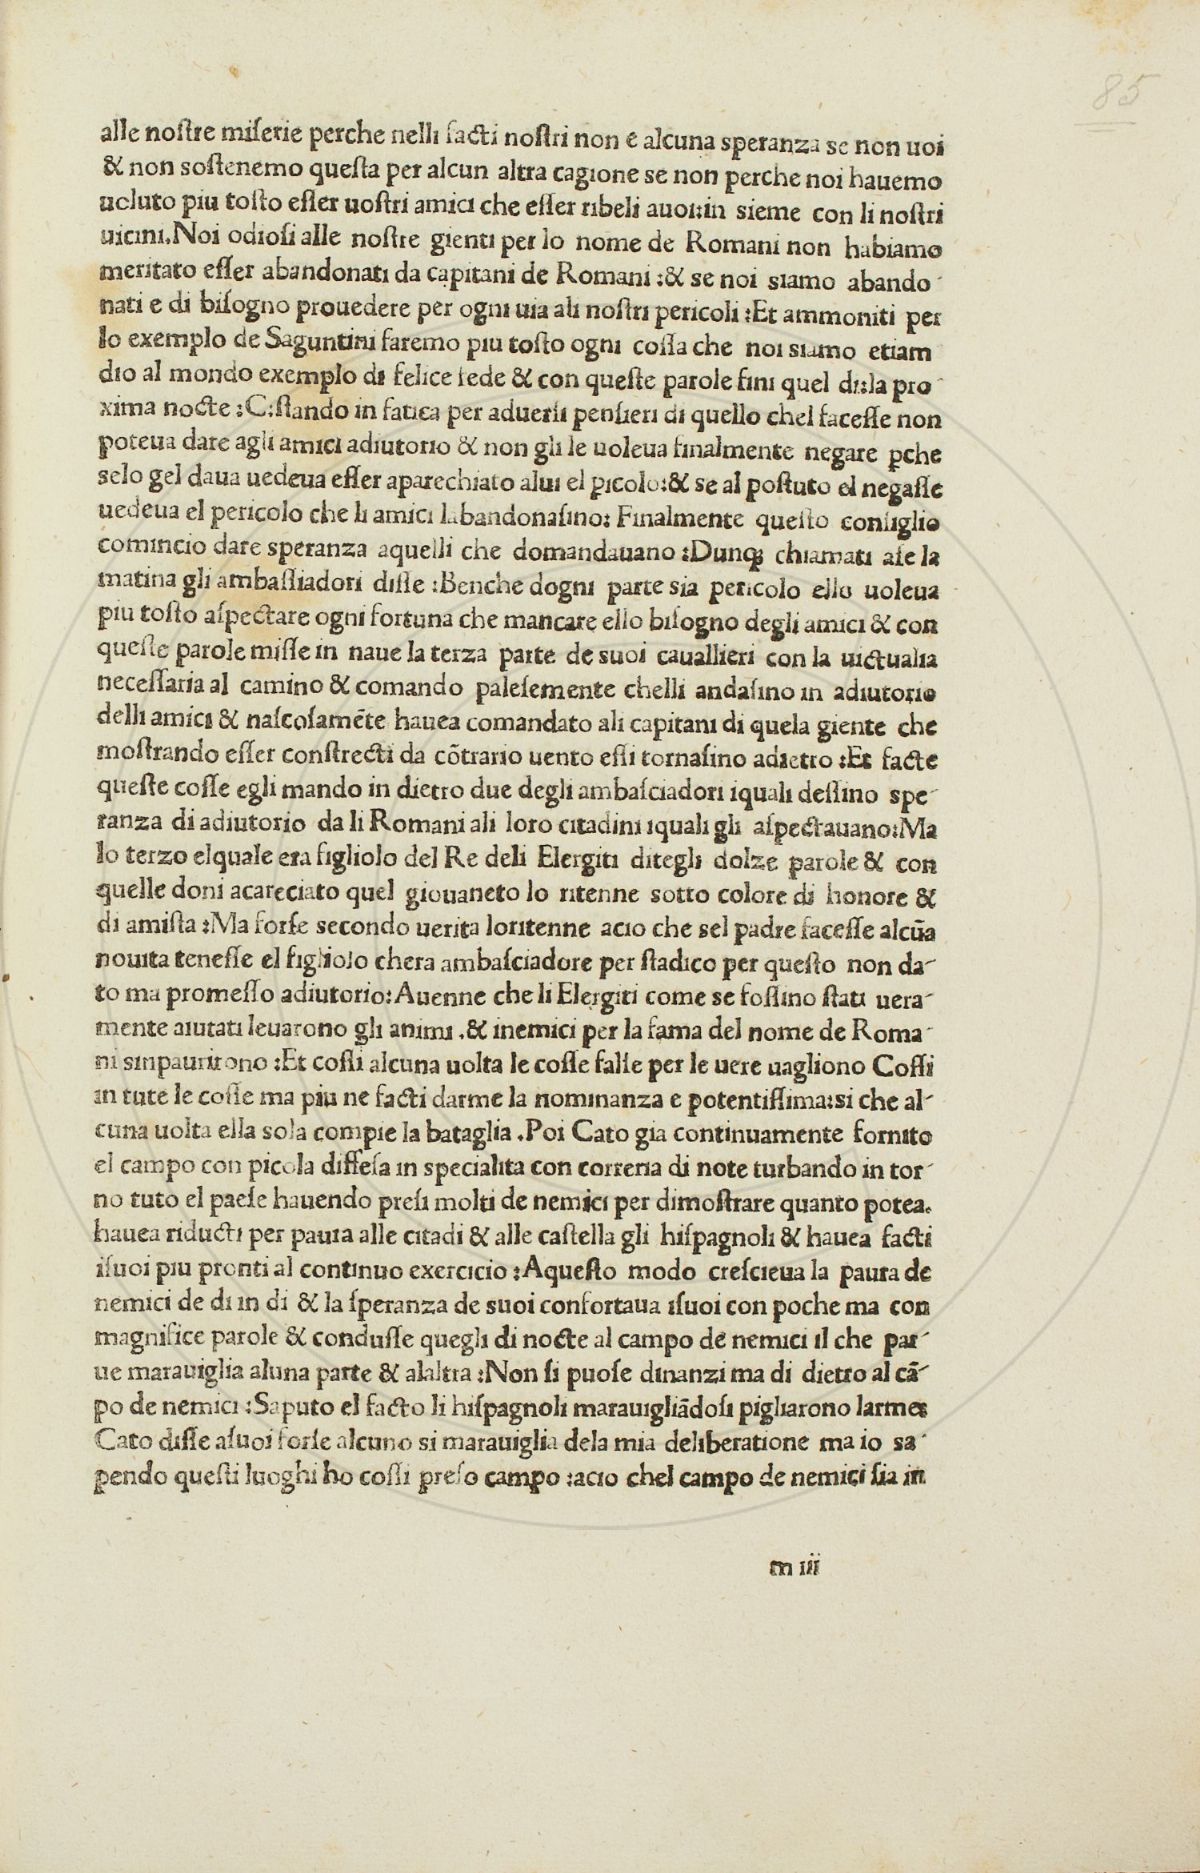 85
alle noſtre miſerie perche nelli facti noſtri non e alcuna speranza se non uoi
& non sostenemo queſta per alcun altra cagione se non perche noi hauemo
uoluto piu toſto eſſer uoſtri amici che eſſer ribeli auoi:in sieme con li noſtri
uicini.Noi odioſi alle noſtre gienti per lo nome de Romani non habiamo
meritato eſſer abandonati da capitani de Romani :& se noi siamo abando
nati e di biſogno prouedere per ogni uia ali noſtri pericoli :Et ammoniti per
lo exemplo de Saguntini faremo piu toſto ogni coſſa che noi siamo etiam
dio al mondo exemplo di felice fede & con queſte parole fini quel di:la pro
xima nocte :C:ſtando in fatica per aduerſi penſieri di quello chel faceſſe non
poteua dare agli amici adiutorio & non gli le uoleua finalmente negare ꝑche
selo gel daua uedeua eſſer aparechiato alui el ꝑicolo:& se al poſtuto el negaſſe
uedeua el pericolo che li amici labandonaſino: Finalmente queſto conſiglio
comincio dare speranza aquelli che domandauano :Dunqꝫ chiamati aſe la
matina gli ambaſſiadori diſſe :Benche dogni parte sia pericolo ello uoleua
piu toſto aſpectare ogni fortuna che mancare ello biſogno degli amici & con
queſte parole miſſe in naue la terza parte de suoi cauallieri con la uictualia
neceſſaria al camino & comando paleſemente chelli andaſino in adiutorio
delli amici & naſcoſamẽte hauea comandato ali capitani di quela giente che
moſtrando eſſer conſtrecti da cõtrario uento eſſi tornaſino adietro :Et facte
queſte coſſe egli mando in dietro due degli ambaſciadori iquali deſſino spe
ranza di adiutorio da li Romani ali loro citadini iquali gli aſpectauano:Ma
lo terzo elquale era figliolo del Re deli Elergiti ditegli dolze parole & con
quelle doni acareciato quel giouaneto lo ritenne sotto colore di honore &
di amiſta :Ma forſe secondo uerita loritenne acio che sel padre faceſſe alcũa
nouita teneſſe el figliolo chera ambaſciadore per ſtadico per queſto non da
to ma promeſſo adiutorio:Auenne che li Elergiti come se foſſino ſtati uera
mente aiutati leuarono gli animi .& inemici per la fama del nome de Roma
ni sinpaurirono :Et coſſi alcuna uolta le coſſe falſe per le uere uagliono Coſſi
in tute le coſſe ma piu ne facti darme la nominanza e potentiſſima:si che al
cuna uolta ella sola compie la bataglia .Poi Cato gia continuamente fornito
el campo con picola diffeſa in specialita con correria di note turbando in tor
no tuto el paeſe hauendo preſi molti de nemici per dimoſtrare quanto potea.
hauea riducti per paura alle citadi & alle caſtella gli hiſpagnoli & hauea facti
iſuoi piu pronti al continuo exercicio :Aqueſto modo creſcieua la paura de
nemici de di in di & la ſperanza de suoi confortaua iſuoi con poche ma con
magnifice parole & conduſſe quegli di nocte al campo de nemici il che par
ue marauiglia aluna parte & alaltra :Non ſi puoſe dinanzi ma di dietro al cã
po de nemici :Saputo el facto li hiſpagnoli marauigliãdoſi pigliarono larme:
Cato diſſe aſuoi forſe alcuno si marauiglia dela mia deliberatione ma io sa
pendo queſti luoghi ho coſſi preſo campo :acio chel campo de nemici ſia in
m iii